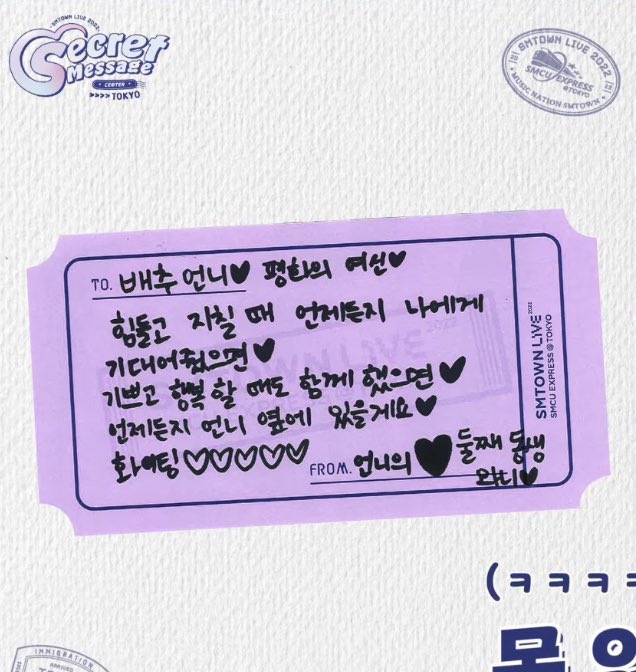 SMTOWN LIVE 2022
Secret
Message
CENTER
>>>> TOKYO
SMTOWN LIVE 2022
SMCU EXPRESS
@TOKYO
MUSIC NATION SMTOWN
TO. 배추 언니♥ 평화의 여신♥
힘들고 지칠 때 언제든지 나에게
기대어줬으면♥
기쁘고 행복할 때도 함께 했으면♥
언제든지 언니 옆에 있을게요♥
화이팅♡♡♡♡♡
FROM. 언니의 ♥ 둘째 동생
완니♥
SMTOWN LIVE 2022
SMCU EXPRESS @TOKYO
SMTOWN LIVE 2022
(ㅋㅋㅋ
IMMIGRATION